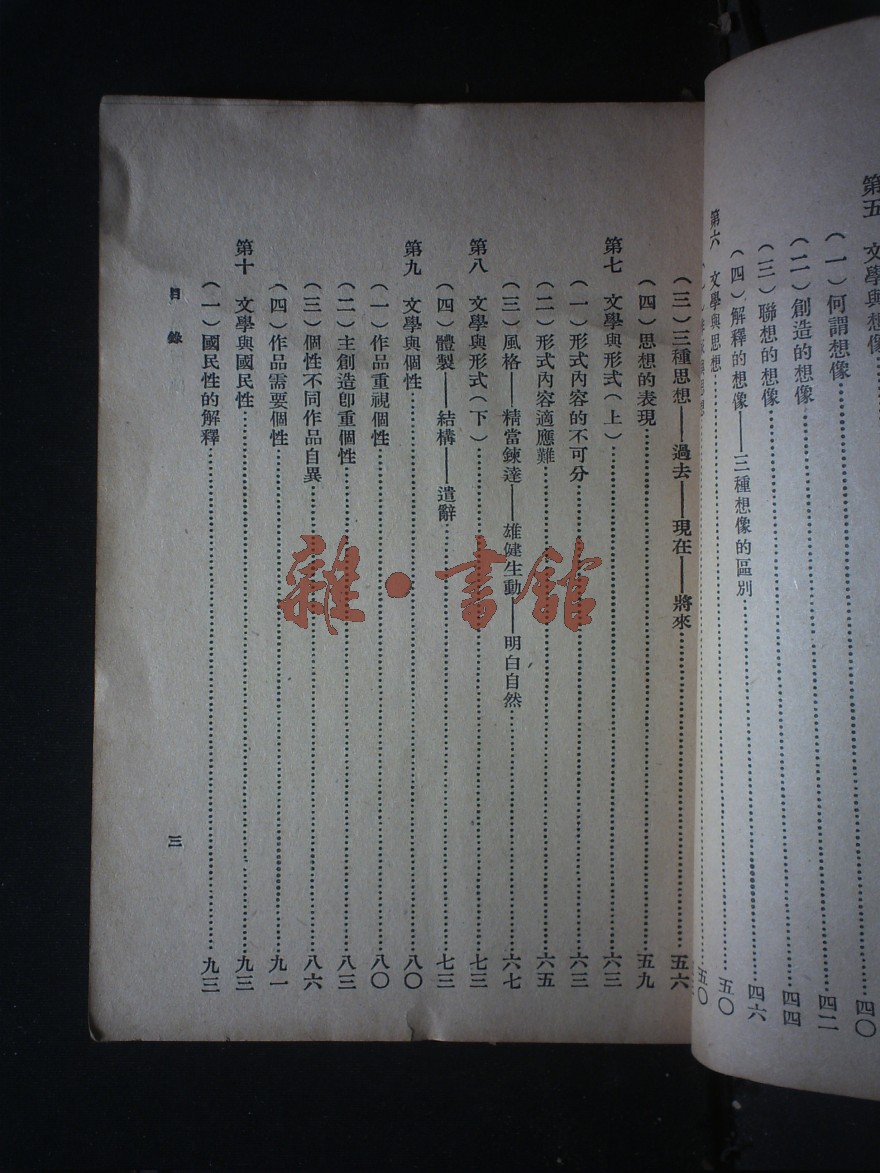 第五　文學與想像……四〇
（一）何謂想像……四二
（二）創造的想像……四四
（三）聯想的想像
（四）解釋的想像——三種想像的區別……四六
第六　文學與思想……五〇
五〇
（三）三種思想——過去——現在——將來……五六
（四）思想的表現……五九
第七　文學與形式（上）……六三
（一）形式內容的不可分……六三
（二）形式內容適應難……六五
（三）風格——精當鍊達——雄健生動——明白自然……六七
第八　文學與形式（下）……七三
（四）體製——結構——遣辭……七三
第九　文學與個性……八〇
（一）作品重視個性……八〇
（二）主創造卽重個性……八三
（三）個性不同作品自異……八六
（四）作品需要個性……九一
第十　文學與國民性……九三
（一）國民性的解釋……九三
目錄　三
雜·書舘